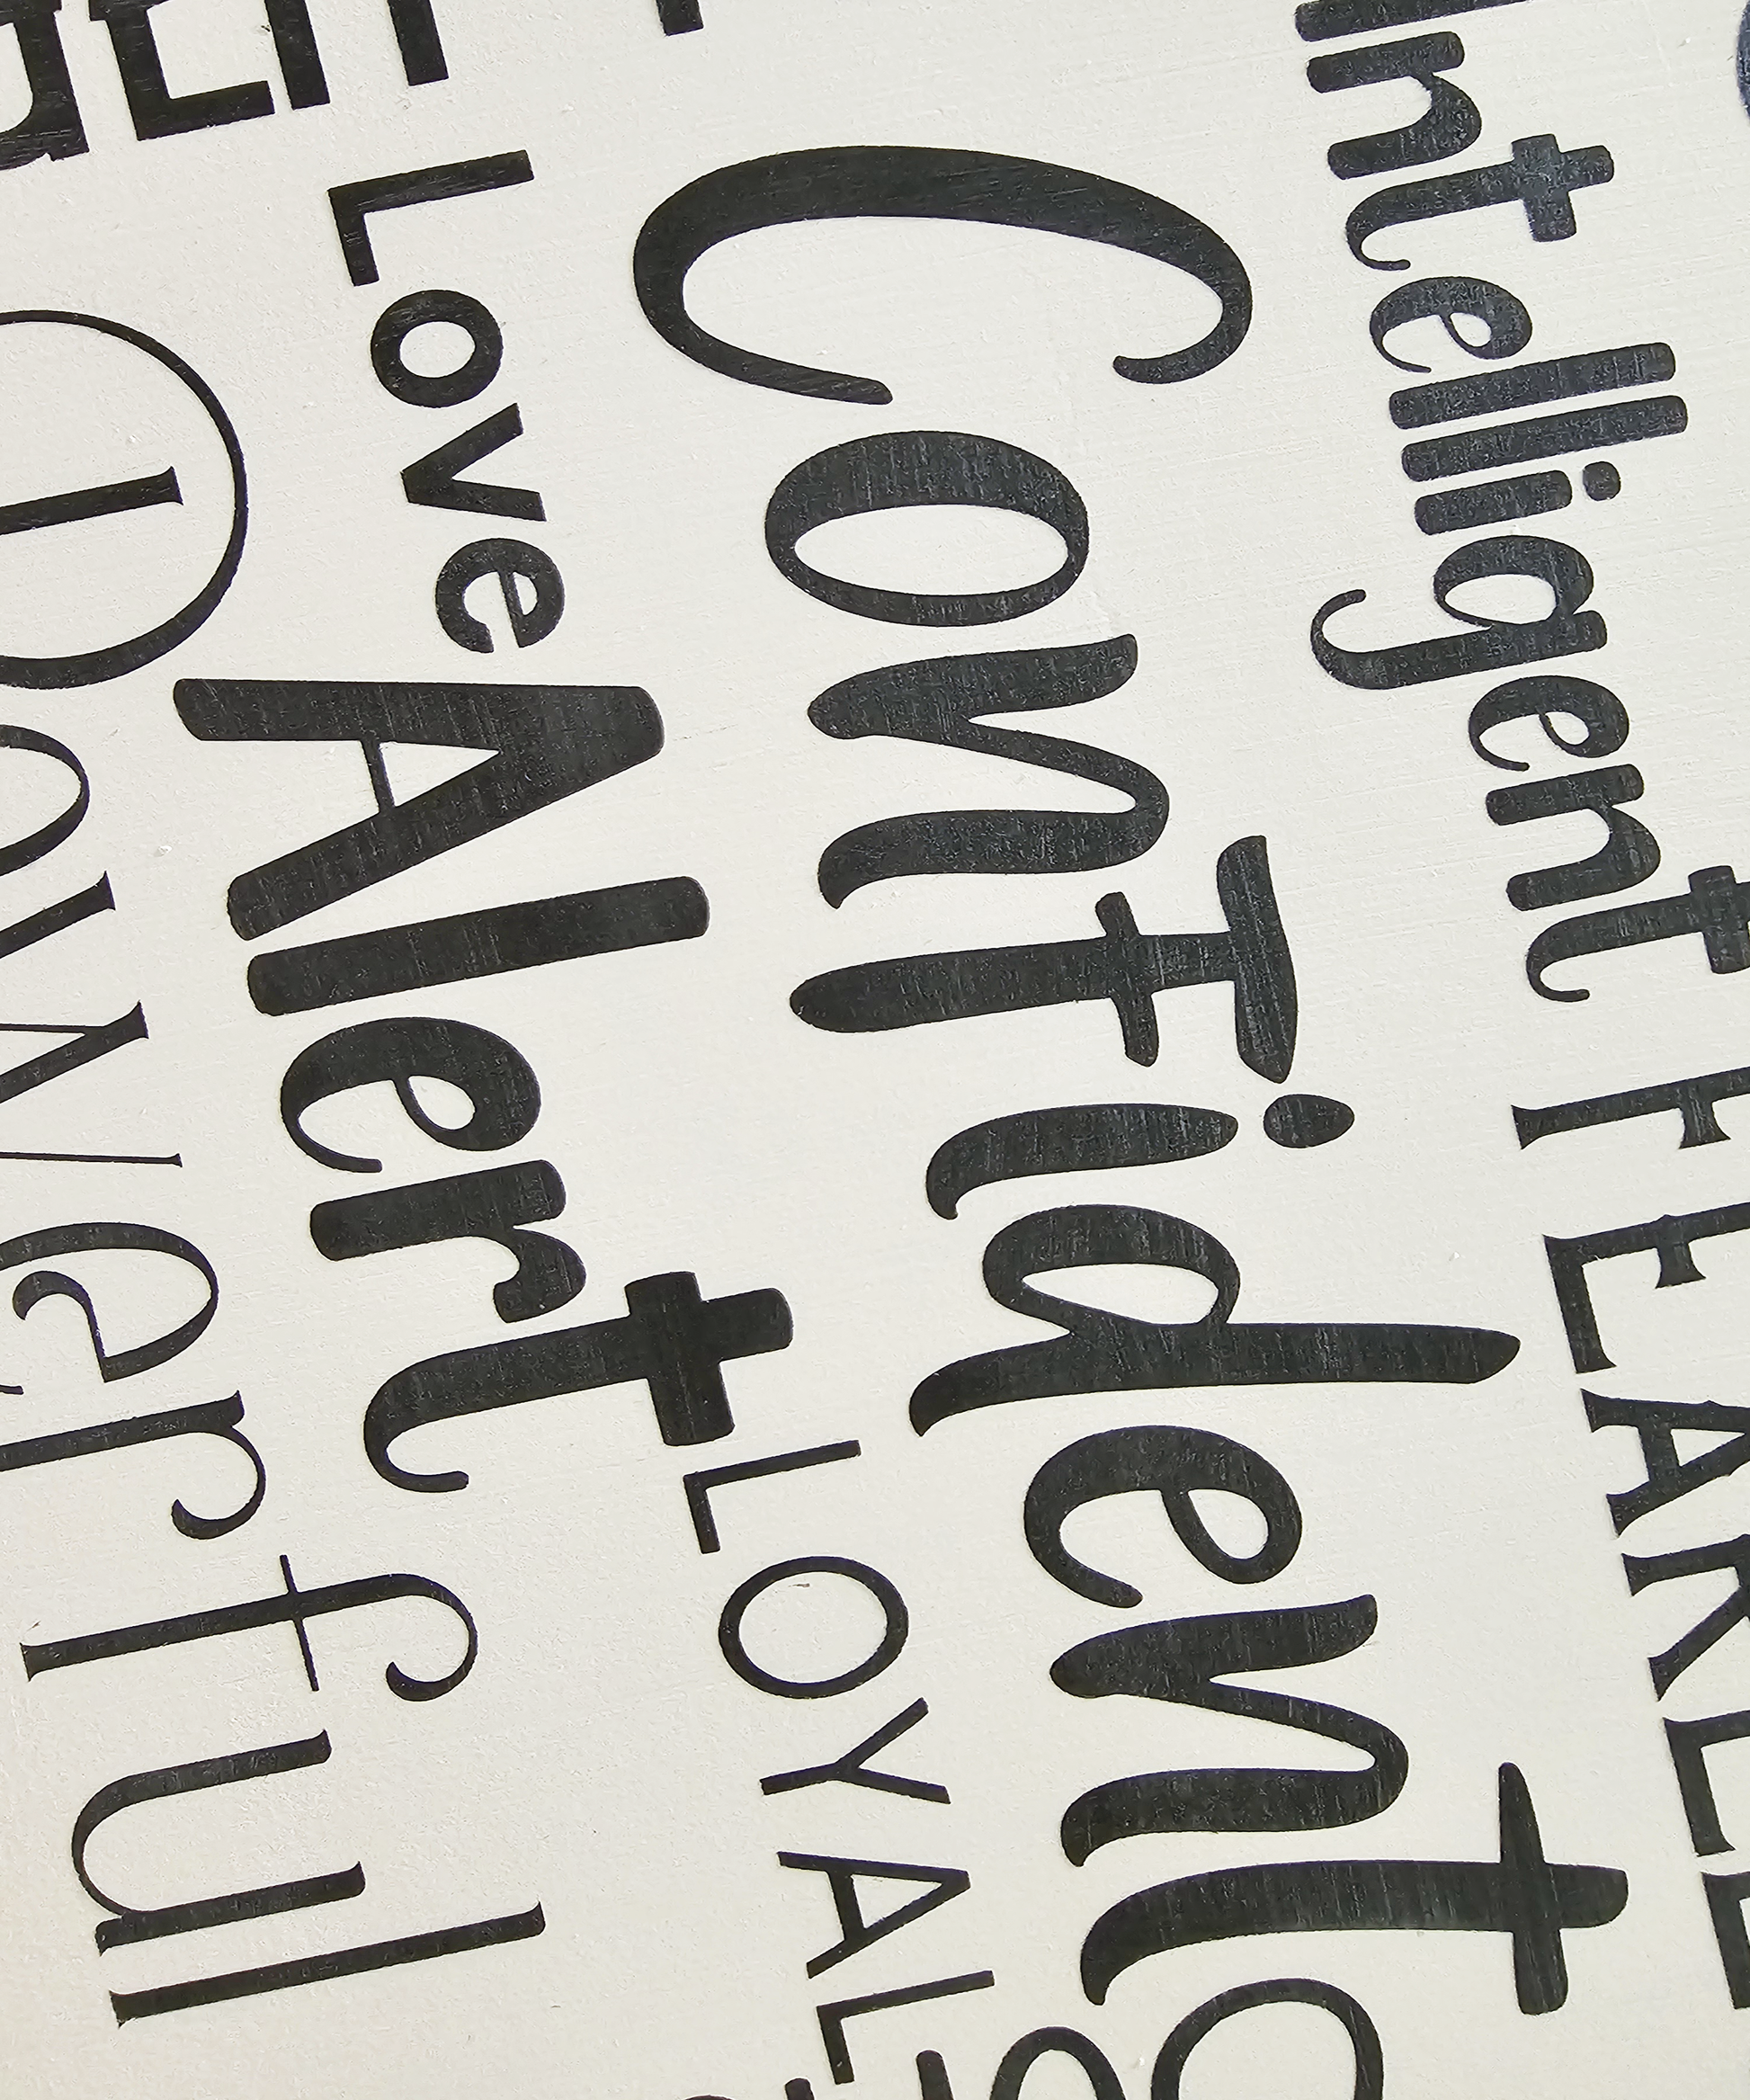 Intelligent FEARLE
Confident
Love Alert LOYAL
Powerful